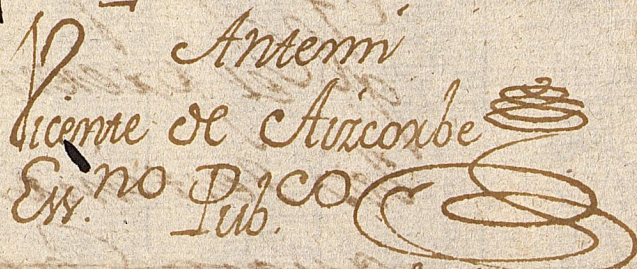 Antemi
Vicente de Aizcorbe
Ess.no Pub.co